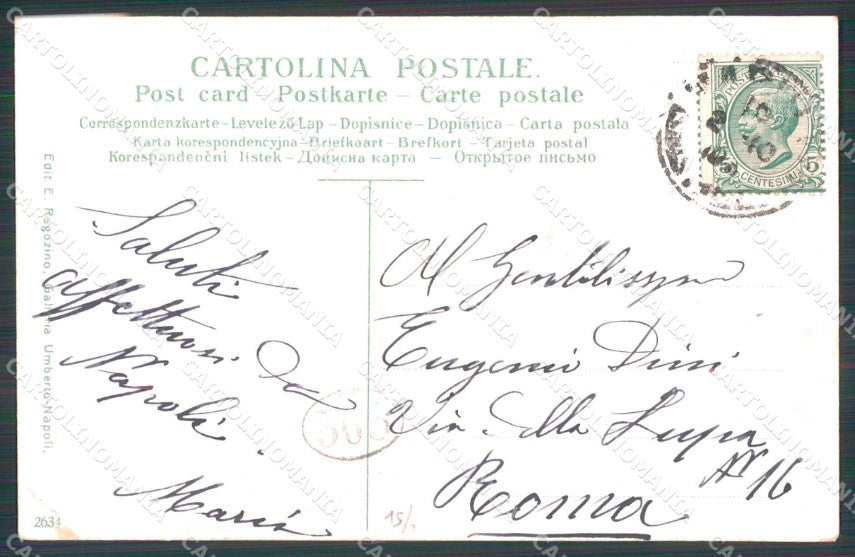 CARTOLINA POSTALE.
Post card – Postkarte – Carte postale
Correspondenzkarte – Levelező Lap – Dopisnice – Dopisnica – Carta postala
Karta korespondencyjna – Briefkaart – Brefkort – Cartjeta postal
Korespondenční listek – Дописна карта – Открытое письмо
POSTE
CENTESIMI 5
Edit. E. Ragozino, Galleria Umberto-Napoli.
Saluti
affettuosi da
Napoli.
Maria
Al Gentilissimo
Eugenio Dini
Via della Lupa
Nr 16
Roma
2631
15/
CARTOLINOMANIA